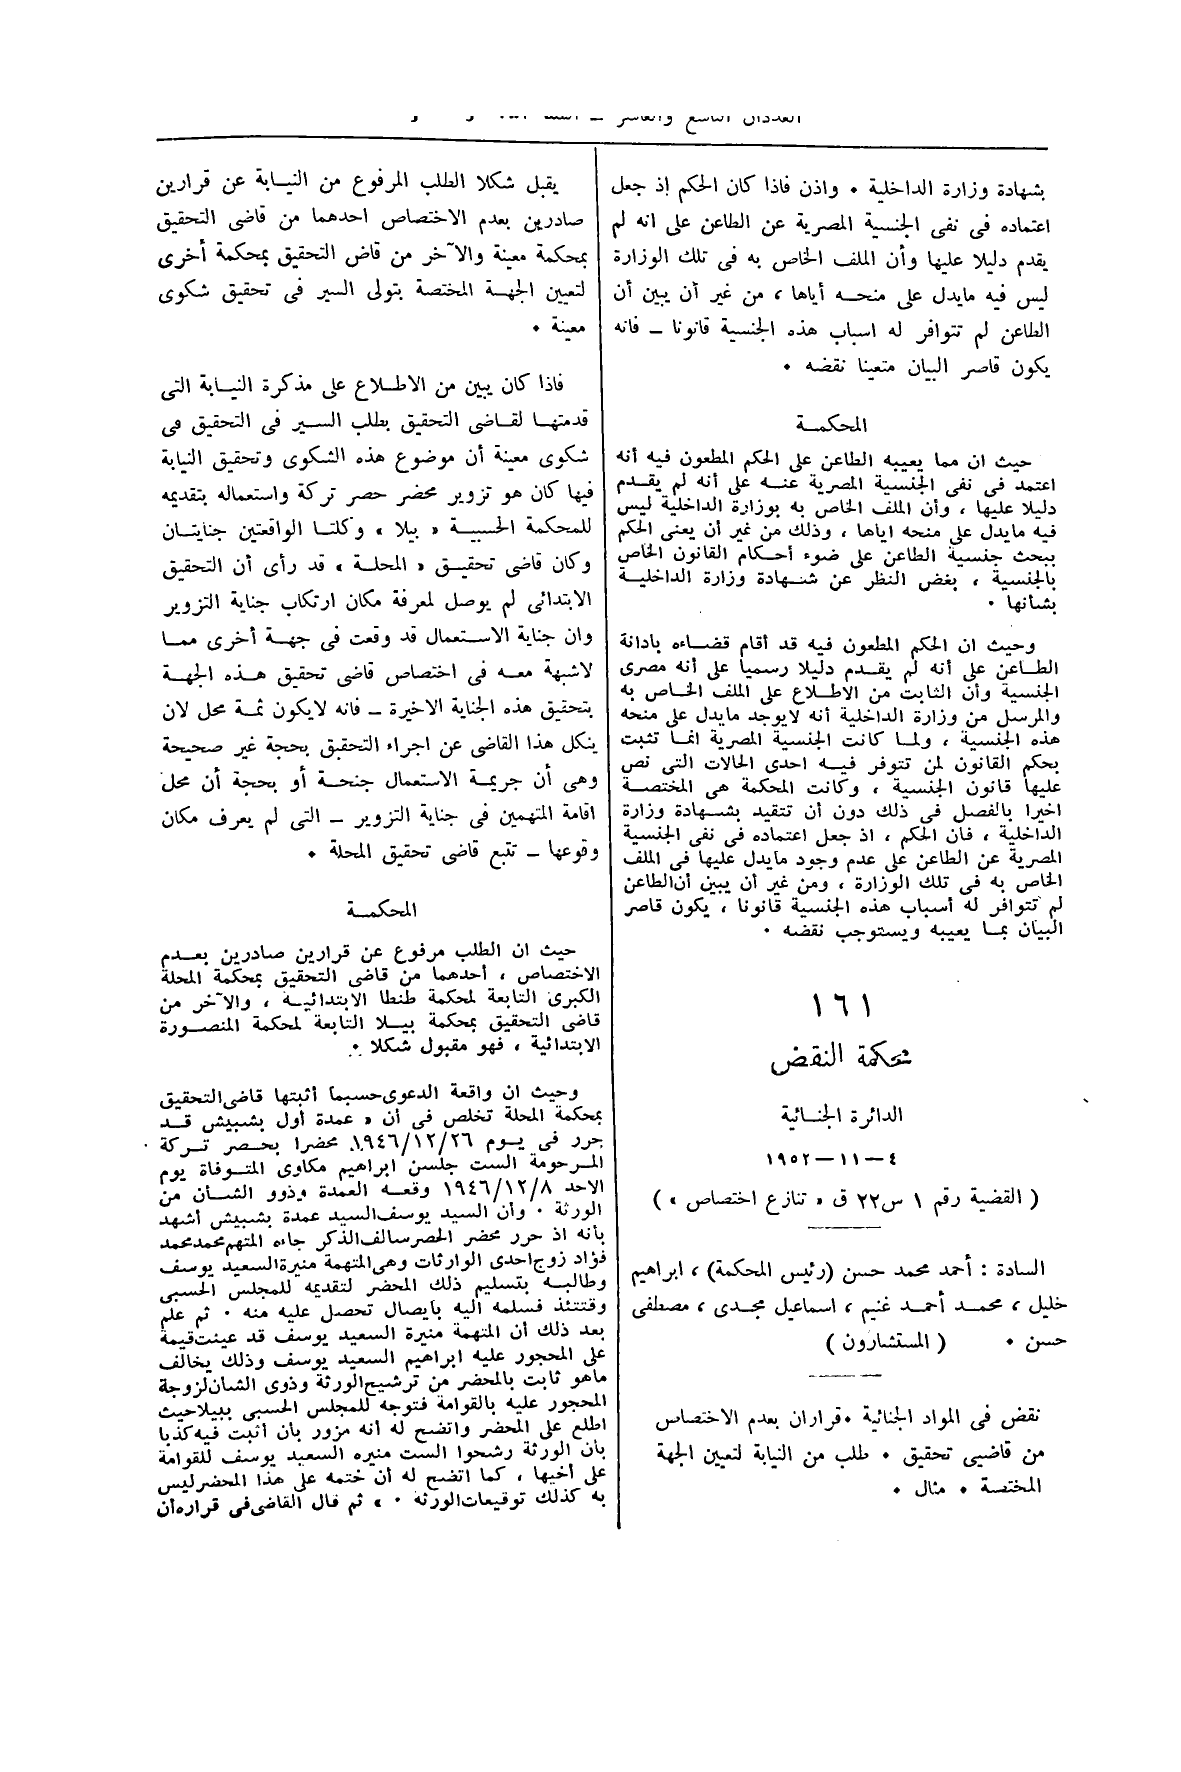 العددان التاسع والعاشر — السنة
بشهادة وزارة الداخلية ٠ واذن فاذا كان الحكم إذ جعل
اعتماده فى نفى الجنسية المصرية عن الطاعن على انه لم
يقدم دليلا عليها وأن الملف الخاص به فى تلك الوزارة
ليس فيه مايدل على منحه أياها ، من غير أن يبين أن
الطاعن لم تتوافر له اسباب هذه الجنسية قانونا — فانه
يكون قاصر البيان متعينا نقضه ٠
المحكمــة
حيث ان مما يعيبه الطاعن على الحكم المطعون فيه أنه
اعتمد فى نفى الجنسية المصرية عنــه على أنه لم يقــدم
دليلا عليها ، وأن الملف الخاص به بوزارة الداخلية ليس
فيه مايدل على منحه اياها ، وذلك من غير أن يعنى الحكم
ببحث جنسية الطاعن على ضوء أحكام القانون الخاص
بالجنسية ، بغض النظر عن شــهادة وزارة الداخليــة
بشأنها ٠
وحيث ان الحكم المطعون فيه قد أقام قضــاءه بادانة
الطـاعن على أنه لم يقــدم دليلا رسميا على أنه مصرى
الجنسية وأن الثابت من الاطــلاع على الملف الخــاص به
والمرسل من وزارة الداخلية أنه لايوجد مايدل على منحه
هذه الجنسية ، ولمـا كانت الجنسية المصرية انمـا تثبت
بحكم القانون لمن تتوفر فيــه احدى الحالات التى نص
عليها قانون الجنسية ، وكانت المحكمة هى المختصــة
اخيرا بالفصل فى ذلك دون أن تتقيد بشــهادة وزارة
الداخلية ، فان الحكم ، اذ جعل اعتماده فى نفى الجنسية
المصرية عن الطاعن على عدم وجود مايدل عليها فى الملف
الخاص به فى تلك الوزارة ، ومن غير أن يبين أن الطاعن
لم تتوافر له أسباب هذه الجنسية قانونا ، يكون قاصر
البيان بمـا يعيبه ويستوجب نقضه ٠
١٦١
محكمة النقض
الدائرة الجنــائية
٤ — ١١ — ١٩٥٢
( القضية رقم ١ س٢٢ ق « تنازع اختصاص » )
السادة : أحمد محمد حسن (رئيس المحكمة) ، ابراهيم
خليل ، محمــد أحمــد غنيم ، اسماعيل مجدى ، مصطفى
حسن ٠ ( المستشارون )
نقض فى المواد الجنائية ٠ قراران بعدم الاختصاص
من قاضيى تحقيق ٠ طلب من النيابة لتعيين الجهة
المختصة ٠ مثال ٠
يقبل شكلا الطلب المرفوع من النيــابة عن قرارين
صادرين بعدم الاختصاص احدهما من قاضى التحقيق
بمحكمة معينة والآخر من قاض التحقيق بمحكمة أخرى
لتعيين الجهة المختصة بتولى السير فى تحقيق شكوى
معينة ٠
فاذا كان يبين من الاطــلاع على مذكرة النيــابة التى
قدمتهــا لقــاضى التحقيق بطلب الســير فى التحقيق فى
شكوى معينة أن موضوع هذه الشكوى وتحقيق النيابة
فيها كان هو تزوير محضر حصر تركة واستعماله بتقديمه
للمحكمة الحسبية « ببلا » وكلتــا الواقعتين جنايتــان
وكان قاضى تحقيــق « المحلــة » قد رأى أن التحقيق
الابتدائى لم يوصل لمعرفة مكان ارتكاب جناية التزوير
وان جناية الاســتعمال قد وقعت فى جهــة أخرى ممــا
لاشبهة معــه فى اختصاص قاضى تحقيق هــذه الجهــة
بتحقيق هذه الجناية الاخيرة — فانه لايكون ثمــة محل لان
ينكل هذا القاضى عن اجراء التحقيق بحجة غير صحيحة
وهى أن جريمــة الاستعمال جنحــة أو بحجة أن محل
اقامة المتهمين فى جناية التزوير — التى لم يعرف مكان
وقوعها — تتبع قاضى تحقيق المحلة ٠
المحكمــة
حيث ان الطلب مرفوع عن قرارين صادرين بعــدم
الاختصاص ، أحدهمـا من قاضى التحقيق بمحكمة المحلة
الكبرى التابعة لمحكمة طنطا الابتدائيــة ، والآخر من
قاضى التحقيق بمحكمة بيــلا التابعة لمحكمة المنصــورة
الابتدائية ، فهو مقبول شكلا ٠
وحيث ان واقعة الدعوى حسبما أثبتها قاضى التحقيق
بمحكمة المحلة تخلص فى أن « عمدة أول بشبيش قــد
حرر فى يــوم ١٩٤٦/١٢/٢٦ محضرا بحصر تــركة
المــرحومة الست جلسن ابراهيم مكاوى المتــوفاة يوم
الاحد ١٩٤٦/١٢/٨ وقعــه العمدة وذوو الشــأن من
الورثة ٠ وأن السيد يوسف السيد عمدة بشبيش أشهد
بأنه اذ حرر محضر الحصر سالف الذكر جاءه المتهم محمد محمد
فؤاد زوج احدى الوارثات وهى المتهمة منيرة السعيد يوسف
وطالبــه بتسليم ذلك المحضر لتقديمه للمجلس الحسبى
وقتئذ فسلمه اليه بايصال تحصل عليه منه ٠ ثم علم
بعد ذلك أن المتهمة منيرة السعيد يوسف قد عينت قيمة
على المحجور عليه ابراهيم السعيد يوسف وذلك يخالف
ماهو ثابت بالمحضر من ترشيح الورثة وذوى الشان لزوجة
المحجور عليه بالقوامة فتوجه للمجلس الحسبى ببيلا حيث
اطلع على المحضر واتضح له أنه مزور بأن أثبت فيه كذبا
بأن الورثة رشحوا الست منيره السعيد يوسف للقوامة
على أخيها ، كما اتضح له أن ختمه على هذا المحضر ليس
به كذلك توقيعات الورثه ٠ » ثم قال القاضى فى قراره أن